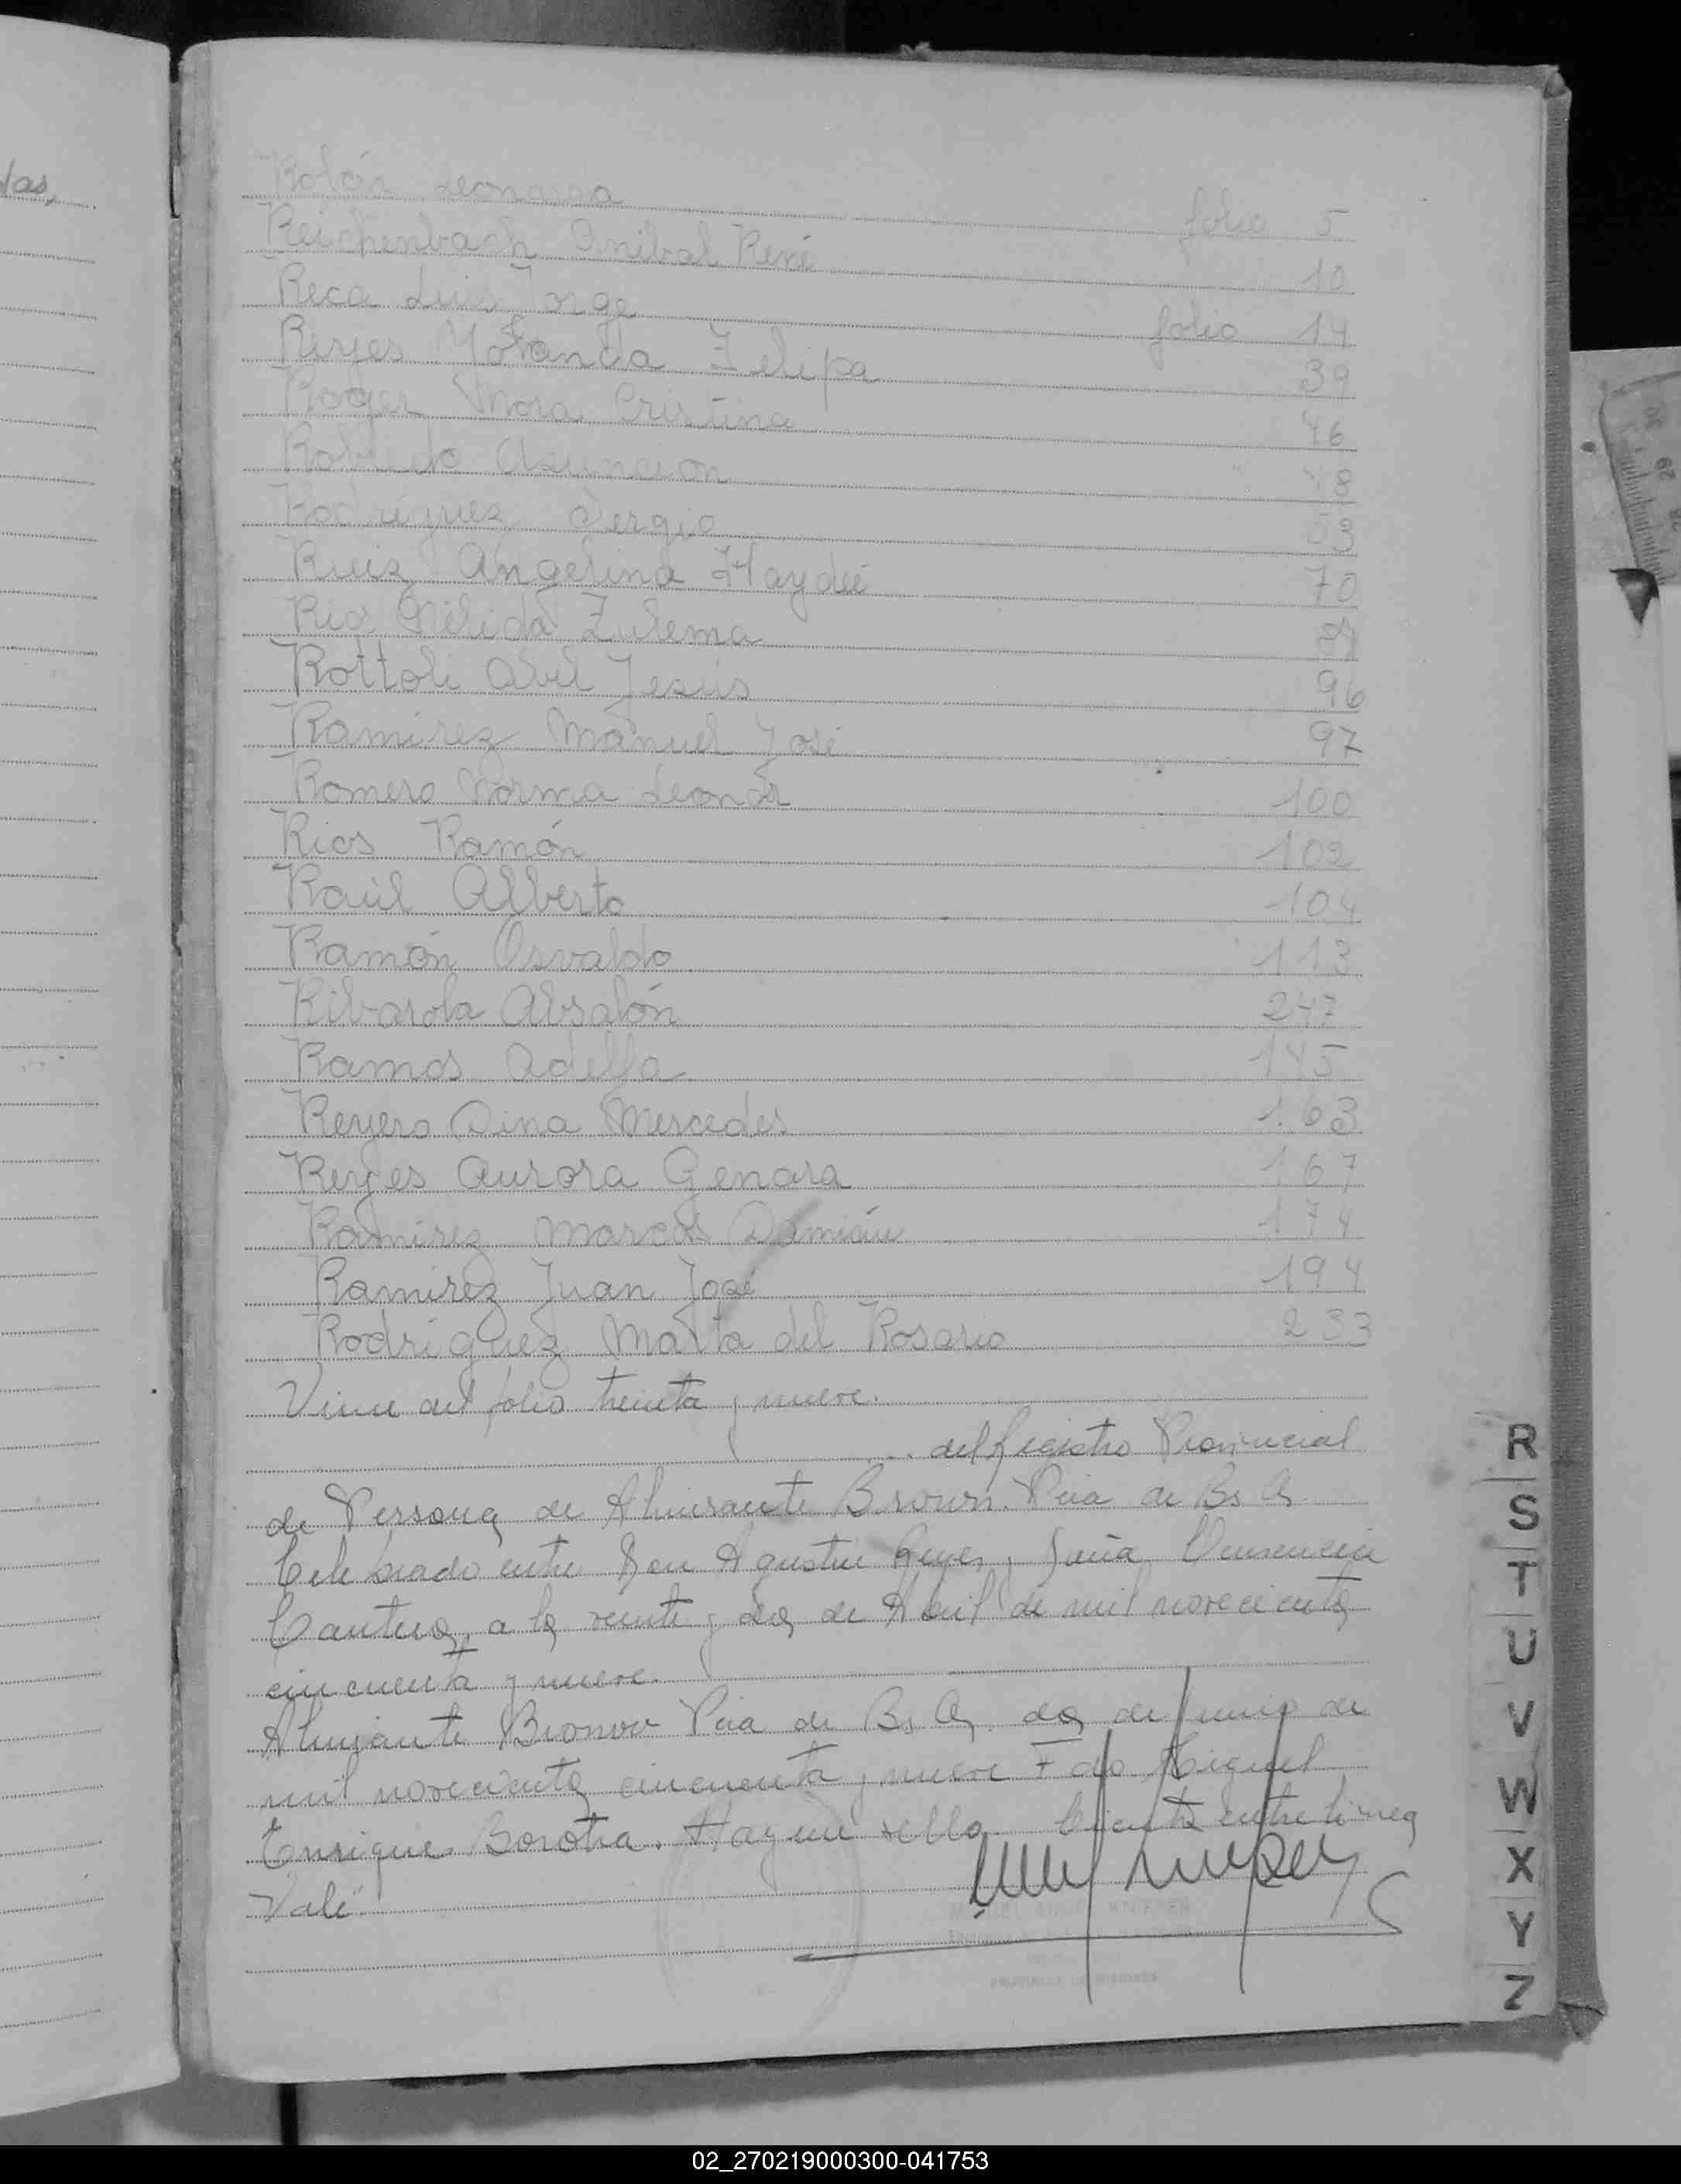 das,
Rolón Leonarda folio 5
Reichenbach Anibal René 10
Reca Luis Jorge folio 14
Reyes Yolanda Felipa 39
Roger Mora Cristina 46
Robledo Asuncion 48
Rodriguez Sergio 53
Ruiz Angelina Haydée 70
Rios Nélida Zulema 84
Rottoli Abel Jesús 96
Ramirez Manuel José 97
Romero Norma Leonor 100
Rios Ramón 102
Raúl Alberto 104
Ramón Osvaldo 113
Ribarola Absalón 247
Ramos Adella 145
Reyero Dina Mercedes 163
Reyes Aurora Genara 167
Ramirez Marcos Damián 174
Ramirez Juan José 194
Rodriguez Marta del Rosario 233
Viene del folio treinta y nueve.
del Registro Provincial
de Personas de Almirante Brown. Pcia de Bs As
Celebrado entre Don Agustin Reyes y
a los veinte y dos de Abril de mil novecientos
cincuenta y nueve.
Almirante Brown Pcia de Bs As, dos de Junio de
mil novecientos cincuenta y nueve Fdo Miguel
Enrique Borotra. Hay un sello. entre lineas
Vale".
MIGUEL ANGEL KNIEPER
PROVINCIA DE MISIONES
R
S
T
U
V
W
X
Y
Z
02_270219000300-041753